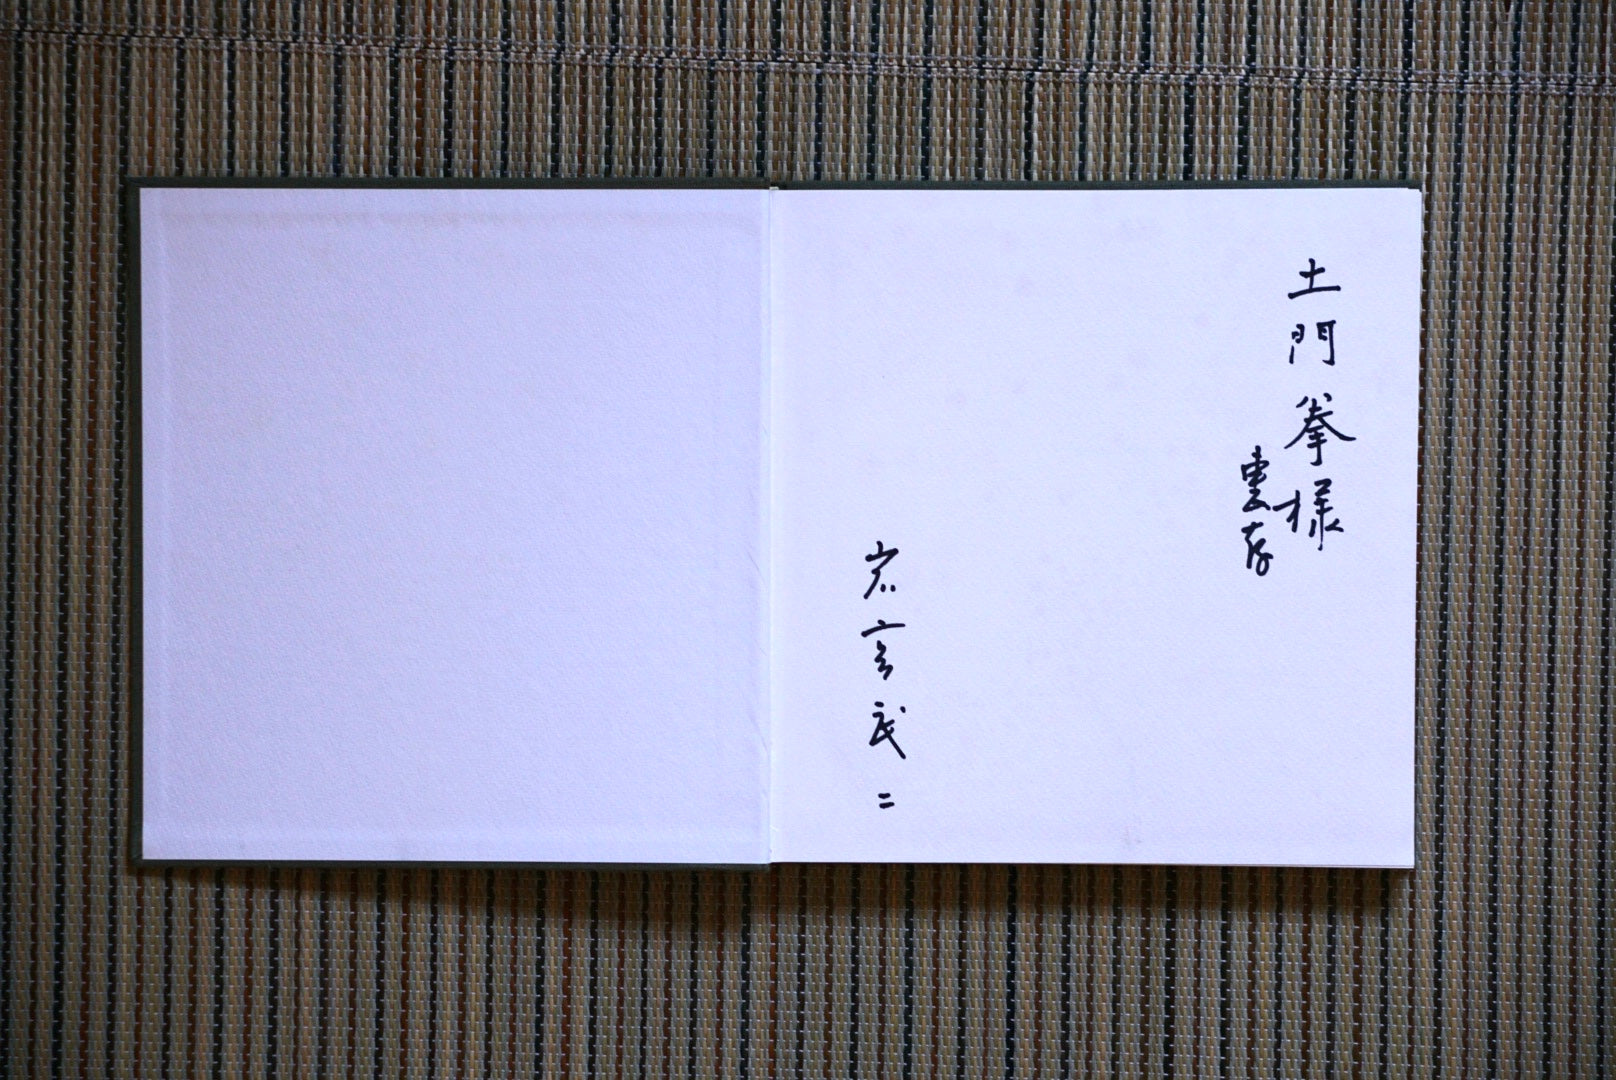 土門拳様
恵存
岩宮武二